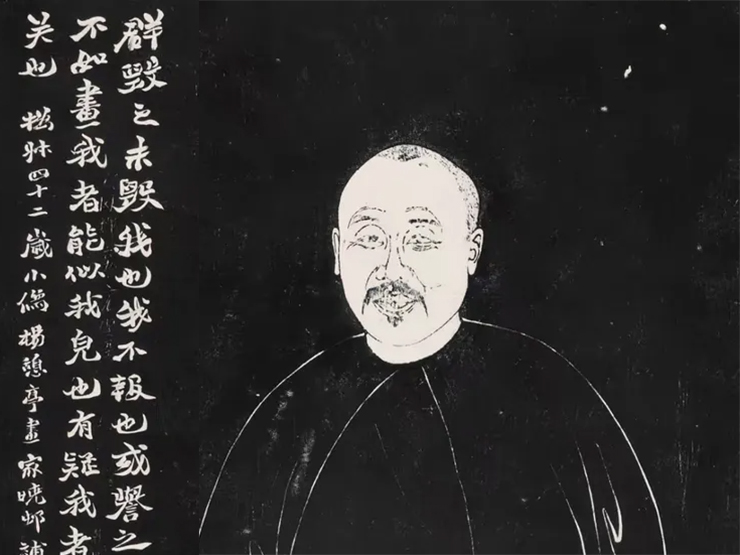 群毀之未毀我也我不報也或譽之
不如畫我者能似我皃也有疑我者
关也 撝叔四十二歲小像楊憩亭畫家曉邨補